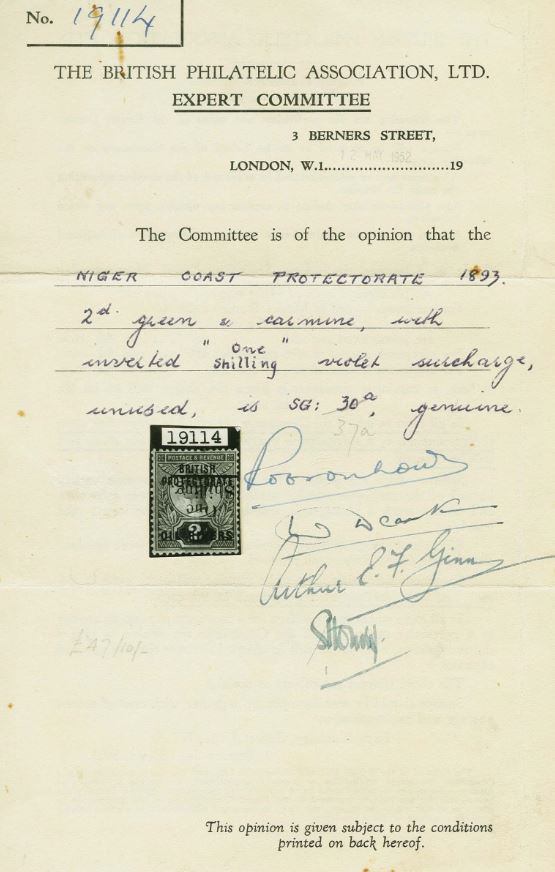 No. 19114
THE BRITISH PHILATELIC ASSOCIATION, LTD.
EXPERT COMMITTEE
3 BERNERS STREET,
12 MAY 1952
LONDON, W.1.............................19
The Committee is of the opinion that the
NIGER COAST PROTECTORATE 1893.
2d. green & carmine, with
inverted "One Shilling" violet surcharge,
unused, is SG: 30a, genuine.
37a
19114
POSTAGE & REVENUE
BRITISH
PROTECTORATE
One Shilling
OIL RIVERS
Arthur E. F. Ginn
£47/10/-
This opinion is given subject to the conditions
printed on back hereof.